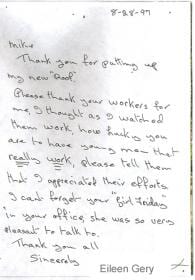 8-28-97
Mike
Thank you for putting up
my new "Roof"
Please thank your workers for
me, I thought as I watched
them work, how lucky you
are to have young men that
really work, please tell them
that I appreciated their efforts
I cant forget your "Girl Friday"
in your office, she was so very
pleasant to talk to.
Thank you all
Sincerely
Eileen Gery